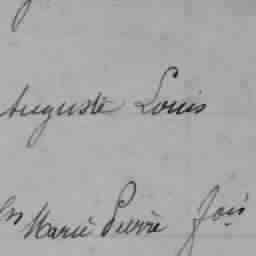 Auguste Louis
Marie Pierre